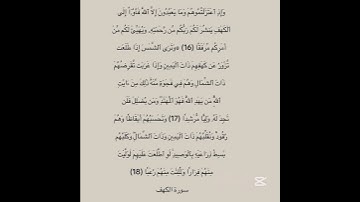 وَإِذِ اعْتَزَلْتُمُوهُمْ وَمَا يَعْبُدُونَ إِلَّا اللَّهَ فَأْوُوا إِلَى
الْكَهْفِ يَنشُرْ لَكُمْ رَبُّكُم مِّن رَّحْمَتِهِ وَيُهَيِّئْ لَكُم مِّنْ
أَمْرِكُم مِّرْفَقًا (16) ۞ وَتَرَى الشَّمْسَ إِذَا طَلَعَت
تَّزَاوَرُ عَن كَهْفِهِمْ ذَاتَ الْيَمِينِ وَإِذَا غَرَبَت تَّقْرِضُهُمْ
ذَاتَ الشِّمَالِ وَهُمْ فِي فَجْوَةٍ مِّنْهُ ذَٰلِكَ مِنْ آيَاتِ
اللَّهِ مَن يَهْدِ اللَّهُ فَهُوَ الْمُهْتَدِ وَمَن يُضْلِلْ فَلَن
تَجِدَ لَهُ وَلِيًّا مُّرْشِدًا (17) وَتَحْسَبُهُمْ أَيْقَاظًا وَهُمْ
رُقُودٌ وَنُقَلِّبُهُمْ ذَاتَ الْيَمِينِ وَذَاتَ الشِّمَالِ وَكَلْبُهُم
بَاسِطٌ ذِرَاعَيْهِ بِالْوَصِيدِ لَوِ اطَّلَعْتَ عَلَيْهِمْ لَوَلَّيْتَ
مِنْهُمْ فِرَارًا وَلَمُلِئْتَ مِنْهُمْ رُعْبًا (18)
سورة الكهف
CapCut